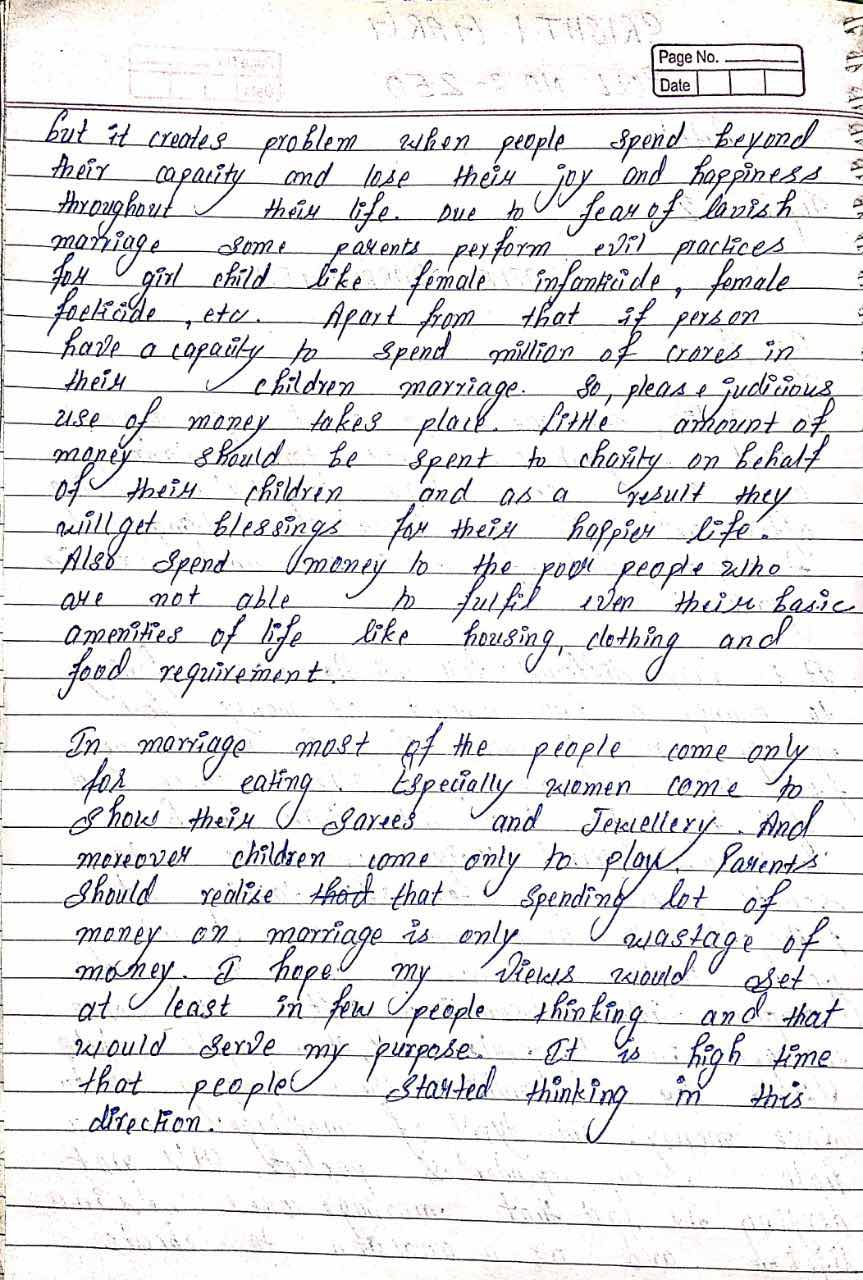 Page No.
Date
but it creates problem when people spend beyond
their capacity and lose their joy and happiness
throughout their life. Due to fear of lavish
marriage some parents perform evil practices
for girl child like female infanticide, female
foeticide, etc. Apart from that if person
have a capacity to spend million of crores in
their children marriage. So, please judicious
use of money takes place. little amount of
money should be spent to charity on behalf
of their children and as a result they
will get blessings for their happier life.
Also spend money to the poor people who
are not able to fulfil even their basic
amenities of life like housing, clothing and
food requirement.
In marriage most of the people come only
for eating. Especially women come to
show their sarees and Jewellery. And
moreover children come only to play. Parents
should realise that that spending lot of
money on marriage is only wastage of
money. I hope my views would set
at least in few people thinking and that
would serve my purpose. It is high time
that people started thinking in this
direction.